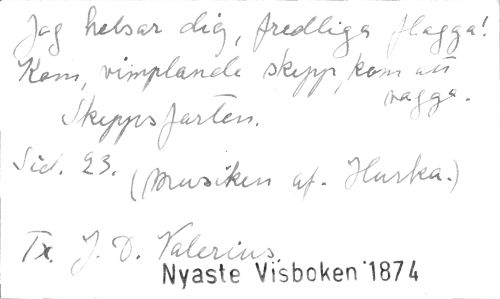 Jag helsar dig, fredliga flagga!
Kom, vimplande skepp, kom att
vagga.
Skeppsfarten.
Sid. 23.
(Musiken af. Hurka.)
Tx. J. D. Valerius.
Nyaste Visboken 1874